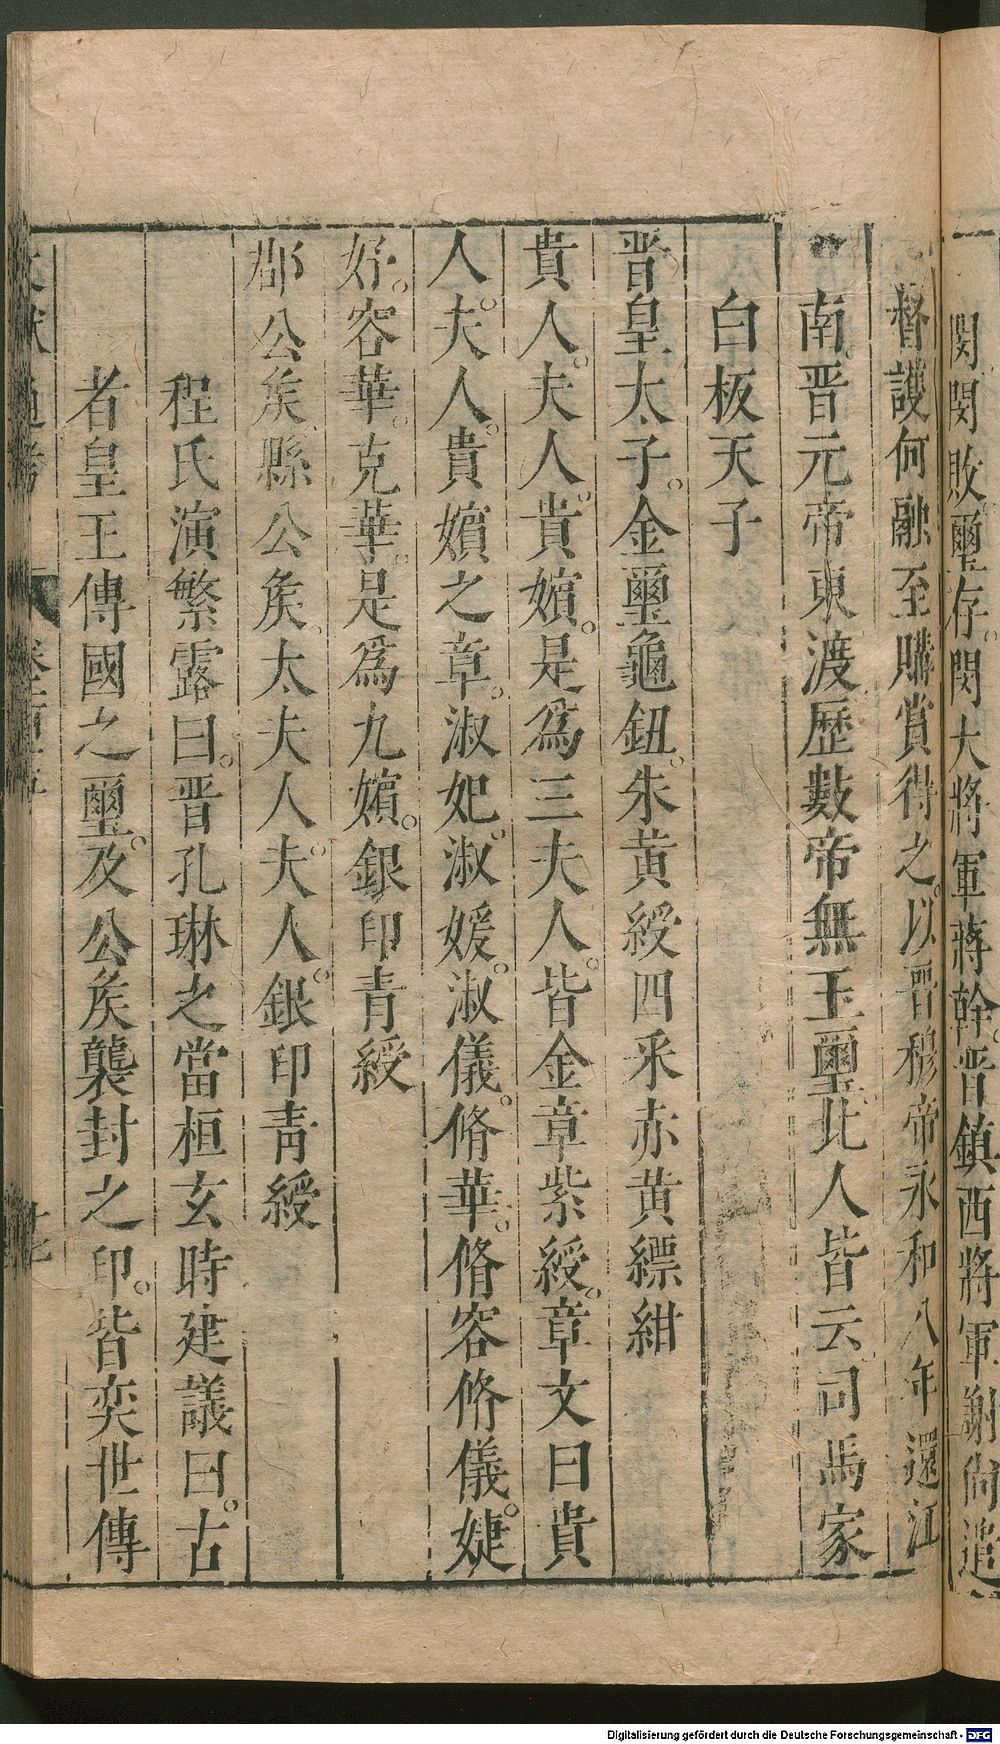 閔閔敗璽存閔大將軍蔣幹晋鎮西將軍謝尚追
督護何融至購賞得之以晋穆帝永和八年還江
南晋元帝東渡歷數帝無玉璽北人皆云司馬家
白板天子
晋皇太子金璽龜鈕朱黄綬四釆赤黄縹紺
貴人夫人貴嬪是爲三夫人皆金章紫綬章文曰貴
人夫人貴嬪之章淑妃淑媛淑儀脩華脩容脩儀婕
妤容華克華是爲九嬪銀印青綬
郡公矦縣公矦太夫人夫人銀印靑綬
程氏演繁露曰晋孔琳之當桓玄時建議曰古
者皇王傳國之璽及公矦襲封之印皆奕世傳
通考
Digitalisierung gefördert durch die Deutsche Forschungsgemeinschaft - DFG